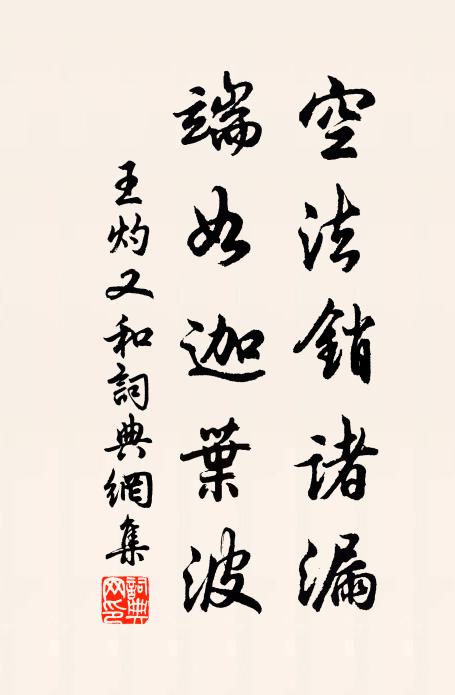 空法銷諸漏
端如迦葉波
王灼又和詞典網集
詞典網印